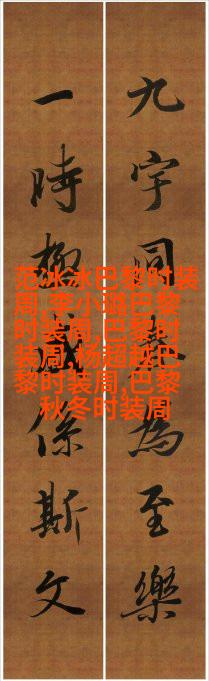 九宇同為至樂
一時係斯文
范冰冰巴黎时装
周,李小璐巴黎
时装周,巴黎时
装周,杨超越巴
黎时装周,巴黎
秋冬时装周